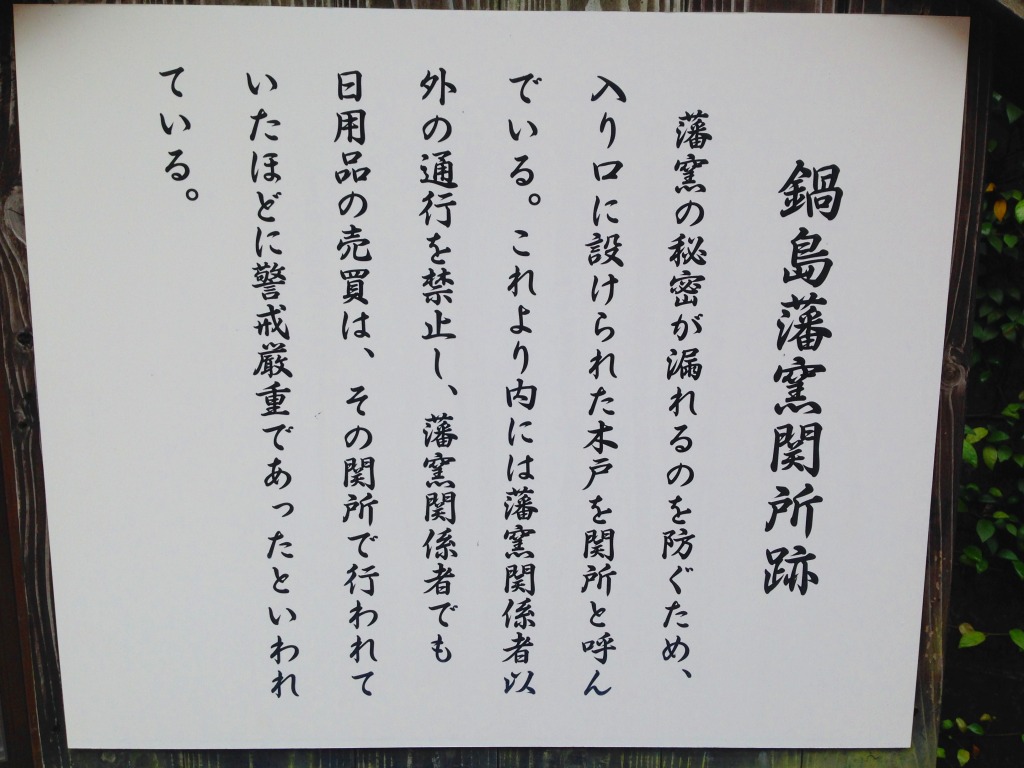 鍋島藩窯関所跡
藩窯の秘密が漏れるのを防ぐため、
入り口に設けられた木戸を関所と呼ん
でいる。これより内には藩窯関係者以
外の通行を禁止し、藩窯関係者でも
日用品の売買は、その関所で行われて
いたほどに警戒厳重であったといわれ
ている。